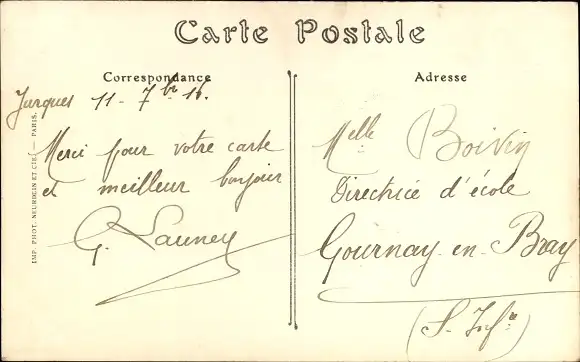 Carte Postale
Correspondance
Adresse
11 - 7bre 16.
Merci pour votre carte
et meilleur bonjour
G. Launey
Melle Boivin
Directrice d'école
Gournay-en-Bray
(S. Infre)
IMP. PHOT. NEURDEIN ET CIE. — PARIS.